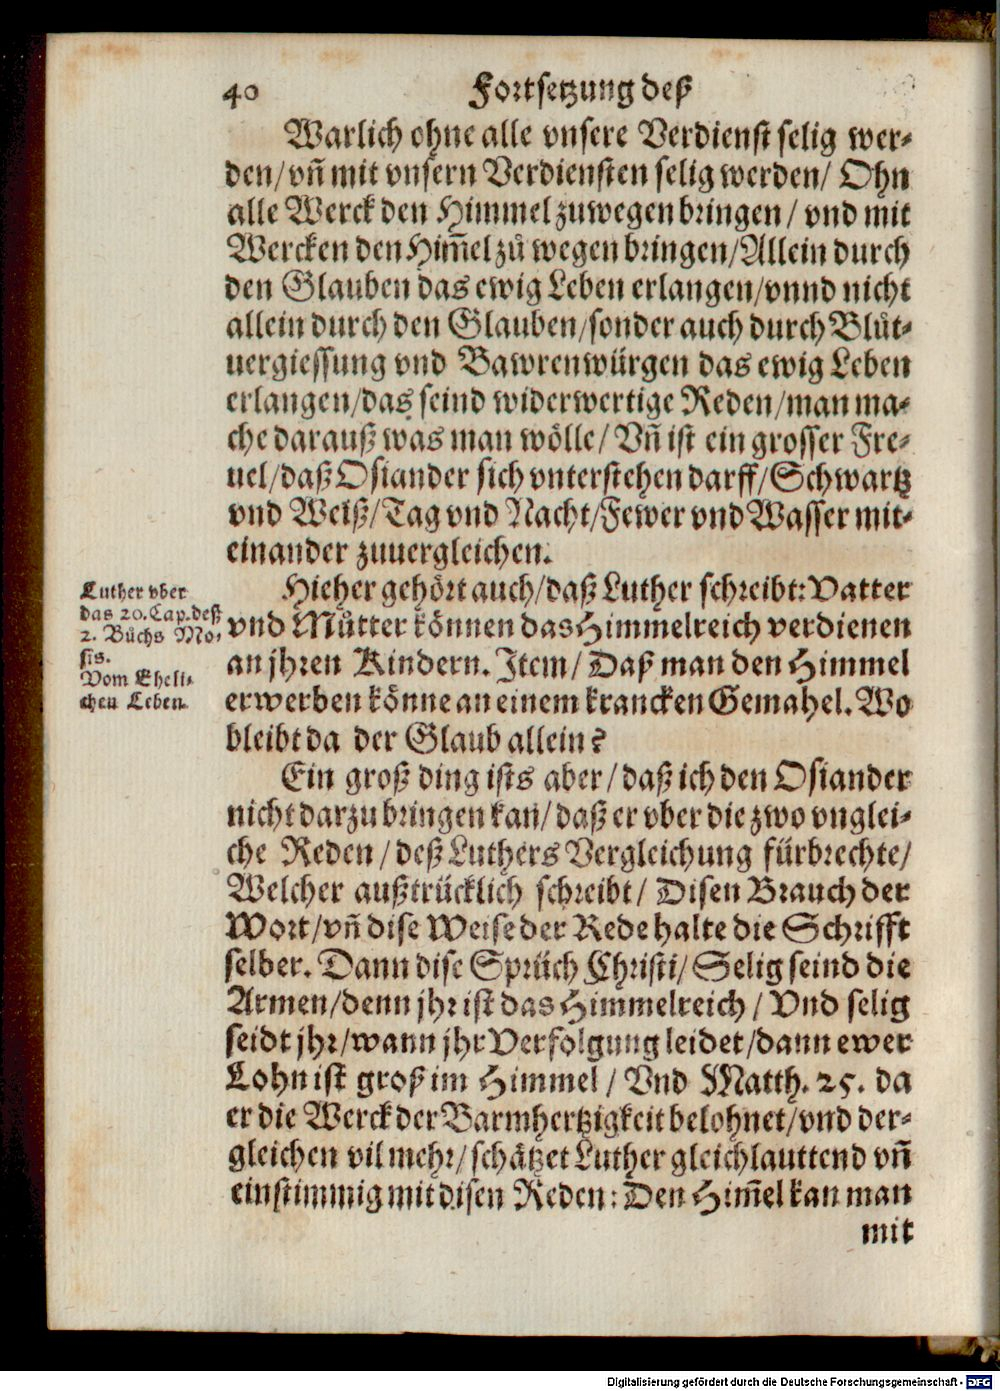 40 Fortsetzung deß
Warlich ohne alle vnsere Verdienst selig wer-
den/vñ mit vnsern Verdiensten selig werden/ Ohn
alle Werck den Himmel zuwegen bringen/ vnd mit
Wercken den Him̃el zů wegen bringen/Allein durch
den Glauben das ewig Leben erlangen/vnnd nicht
allein durch den Glauben/sonder auch durch Blůt-
uergiessung vnd Bawrenwürgen das ewig Leben
erlangen/das seind widerwertige Reden/man ma-
che darauß was man wölle/ Vñ ist ein grosser Fre-
uel/daß Osiander sich vnterstehen darff/Schwartz
vnd Weiß/Tag vnd Nacht/Fewer vnd Wasser mit-
einander zuuergleichen.
Hieher gehört auch/daß Luther schreibt: Vatter
vnd Můtter können das Himmelreich verdienen
an jhren Kindern. Item/ Daß man den Himmel
erwerben könne an einem krancken Gemahel. Wo
bleibt da der Glaub allein?
Luther vber
das 20. Cap. deß
2. Bůchs Mo-
sis.
Vom Eheli-
chen Leben.
Ein groß ding ists aber/ daß ich den Osiander
nicht darzu bringen kan/ daß er vber die zwo vnglei-
che Reden/ deß Luthers Vergleichung fürbrechte/
Welcher außtrücklich schreibt/ Disen Brauch der
Wort/vñ dise Weise der Rede halte die Schrifft
selber. Dann dise Sprüch Christi/ Selig seind die
Armen/denn jhr ist das Himmelreich/ Vnd selig
seidt jhr/wann jhr Verfolgung leidet/dann ewer
Lohn ist groß im Himmel/ Vnd Matth. 25. da
er die Werck der Barmhertzigkeit belohnet/vnd der-
gleichen vil mehr/schätzet Luther gleichlauttend vñ
einstimmig mit disen Reden: Den Him̃el kan man
mit
Digitalisierung gefördert durch die Deutsche Forschungsgemeinschaft - DFG